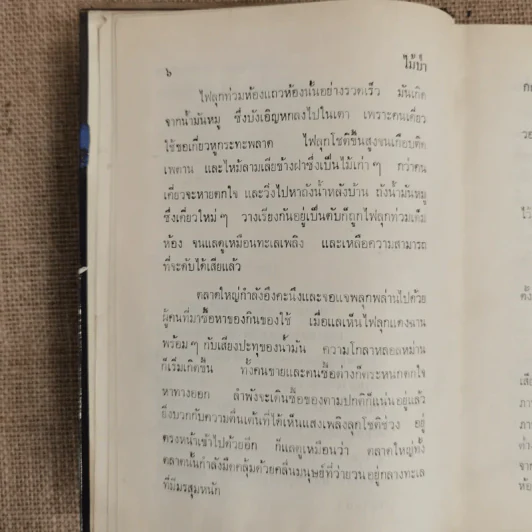 ๖
ไม้ป่า
ไฟลุกท่วมห้องแถวห้องนั้นอย่างรวดเร็ว มันเกิด
จากน้ำมันหมู ซึ่งบังเอิญหกลงไปในเตา เพราะคนเคี่ยว
ใช้ขอเกี่ยวหูกระทะพลาด ไฟลุกโชติขึ้นสูงจนเกือบติด
เพดาน และไหม้ลามเลียข้างฝาซึ่งเป็นไม้เก่า ๆ กว่าคน
เคี่ยวจะหายตกใจ และวิ่งไปหาถังน้ำหลังบ้าน ถังน้ำมันหมู
ซึ่งเคี่ยวใหม่ ๆ วางเรียงกันอยู่เป็นตับก็ถูกไฟลุกท่วมเต็ม
ห้อง จนแลดูเหมือนทะเลเพลิง และเหลือความสามารถ
ที่จะดับได้เสียแล้ว
ตลาดใหญ่กำลังอึงคะนึงและจอแจพลุกพล่านไปด้วย
ผู้คนที่มาซื้อหาของกินของใช้ เมื่อแลเห็นไฟลุกแดงฉาน
พร้อม ๆ กับเสียงปะทุของน้ำมัน ความโกลาหลอลหม่าน
ก็เริ่มเกิดขึ้น ทั้งคนขายและคนซื้อต่างก็ตระหนกตกใจ
หาทางออก ลำพังจะเดินซื้อของตามปกติก็แน่นอยู่แล้ว
ยิ่งบวกกับความตื่นเต้นที่ได้เห็นแสงเพลิงลุกโชติช่วง อยู่
ตรงหน้าเข้าไปด้วยอีก ก็แลดูเหมือนว่า ตลาดใหญ่ทั้ง
ตลาดนั้นกำลังมืดคลุ้มด้วยคลื่นมนุษย์ที่ว่ายวนอยู่กลางทะเล
ที่มีมรสุมหนัก